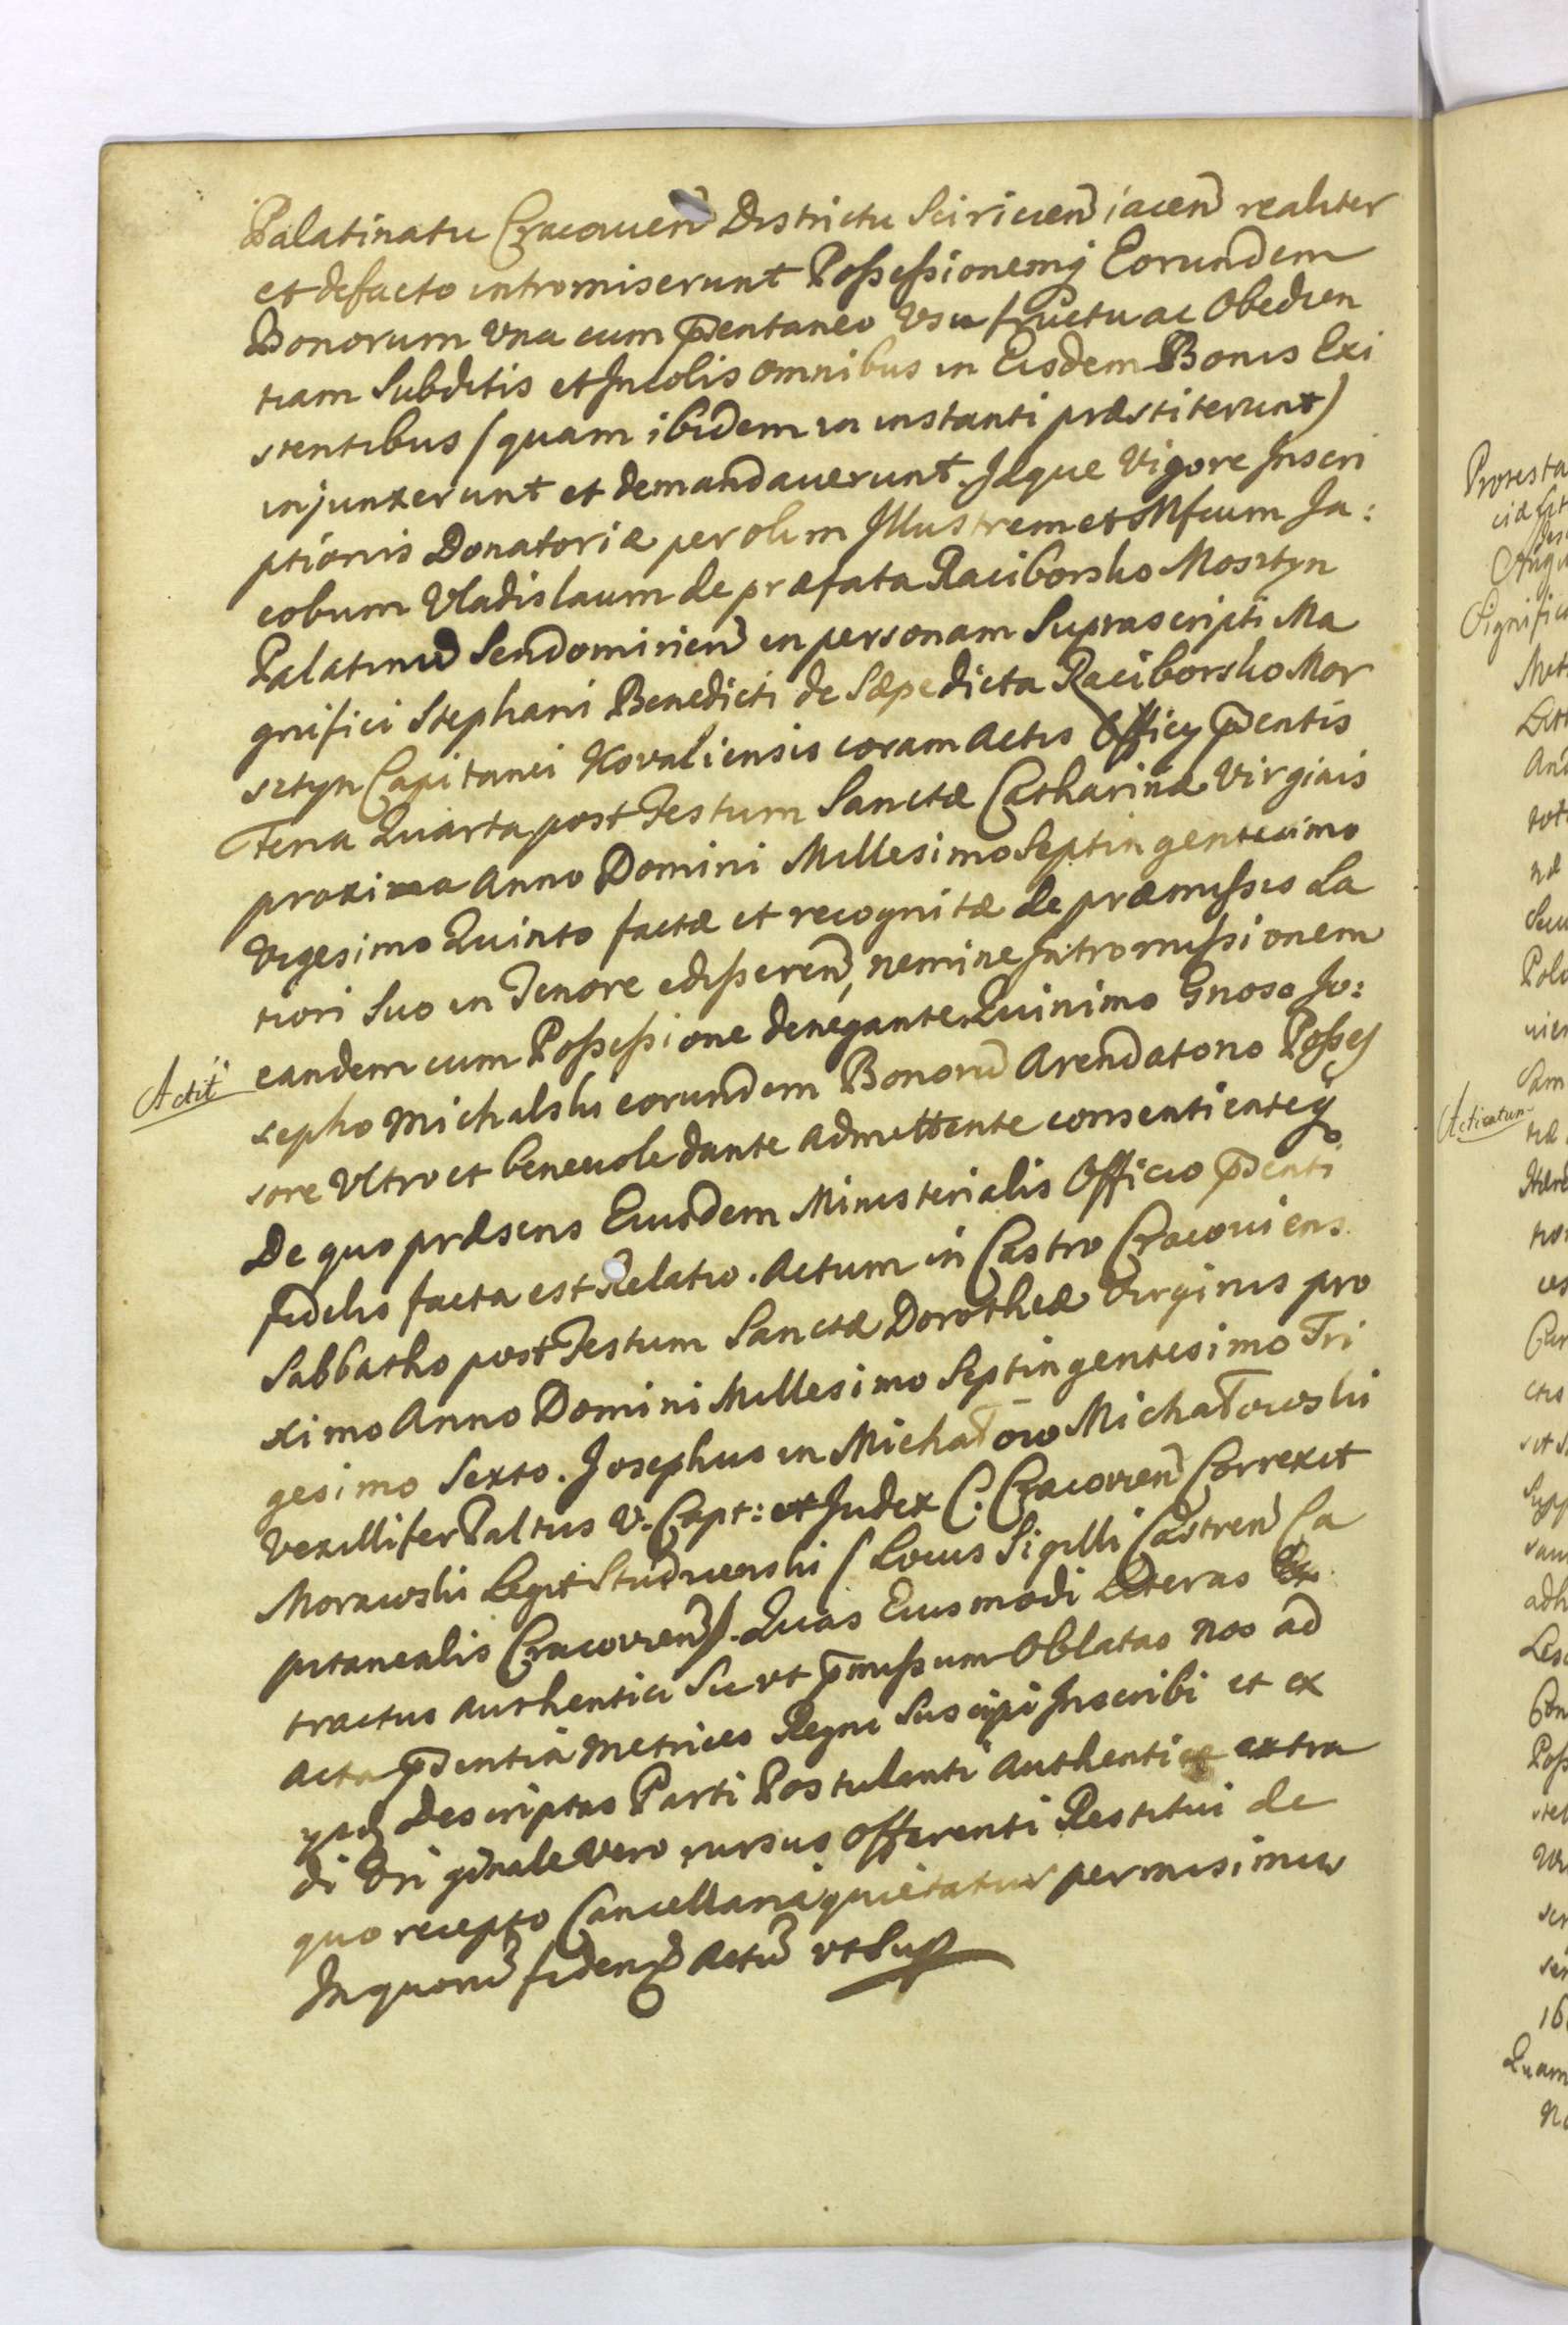 Palatinatu Cracouen Districtu Sciricien iacen realiter
et defacto intromiserunt Possessionemq Eorundem
Bonorum Vna cum pntaneo Vsufructu ac Obedien
tiam Subditis et Incolis omnibus in Eisdem Bonis Exi
stentibus (quam ibidem in instanti præstiterunt)
injunxerunt et demandauerunt. Idque Vigore Inscri
ptionis Donatoriæ per olim Illustrem et Mfcum Ja:
cobum Vladislaum de præfata Raciborsko Morsztyn
Palatinu Sendomirien in personam Suprascripti Ma
gnifici Stephani Benedicti de Sæpedicta Raciborsko Mor
sztyn Capitanei Kovaliensis coram Actis Officy pntis
Feria Quarta post Festum Sanctæ Catharinæ Virginis
proxima Anno Domini Millesimo Septingentesimo
Vigesimo Quinto factæ et recognitæ de præmissis La
tiori Suo in Tenore edisseren, nemine Intromissionem
Actit
eandem cum Possessione denegante Quinimo Gnoso Jo:
sepho Michalski eorundem Bonoru Arendatorio Posses
sore Vltro et beneuole dante admittente consentienteq
De quo præsens Eiusdem Ministerialis Officio pnti
fidelis facta est Relatio. Actum in Castro Cracouiens.
Sabbatho post Festum Sanctæ Dorotheæ Virginis pro
ximo Anno Domini Millesimo Septingentesimo Tri
gesimo Sexto. Josephus in Michałow Michałowski
Vexillifer Paltus V. Capt: et Judex C. Cracovien Correxit
Morawski Legit Studnicnski (Locus Sigilli Castren Ca
pitanealis Cracovien). Quas Eiusmodi Literas Ex
tractus authentici Su vt pmissum Oblatas nos ad
Acta pntia Metrices Regni Suscipi Inscribi et ex
ystd Descriptas Parti Postulanti authentice extra
di Originale Vero rursus offerenti Restitui de
quo recepto Cancellaria quietatur permisimus
In quoru fidem Actu vt Sup
Protesta
Significa
Acticatum
Quam